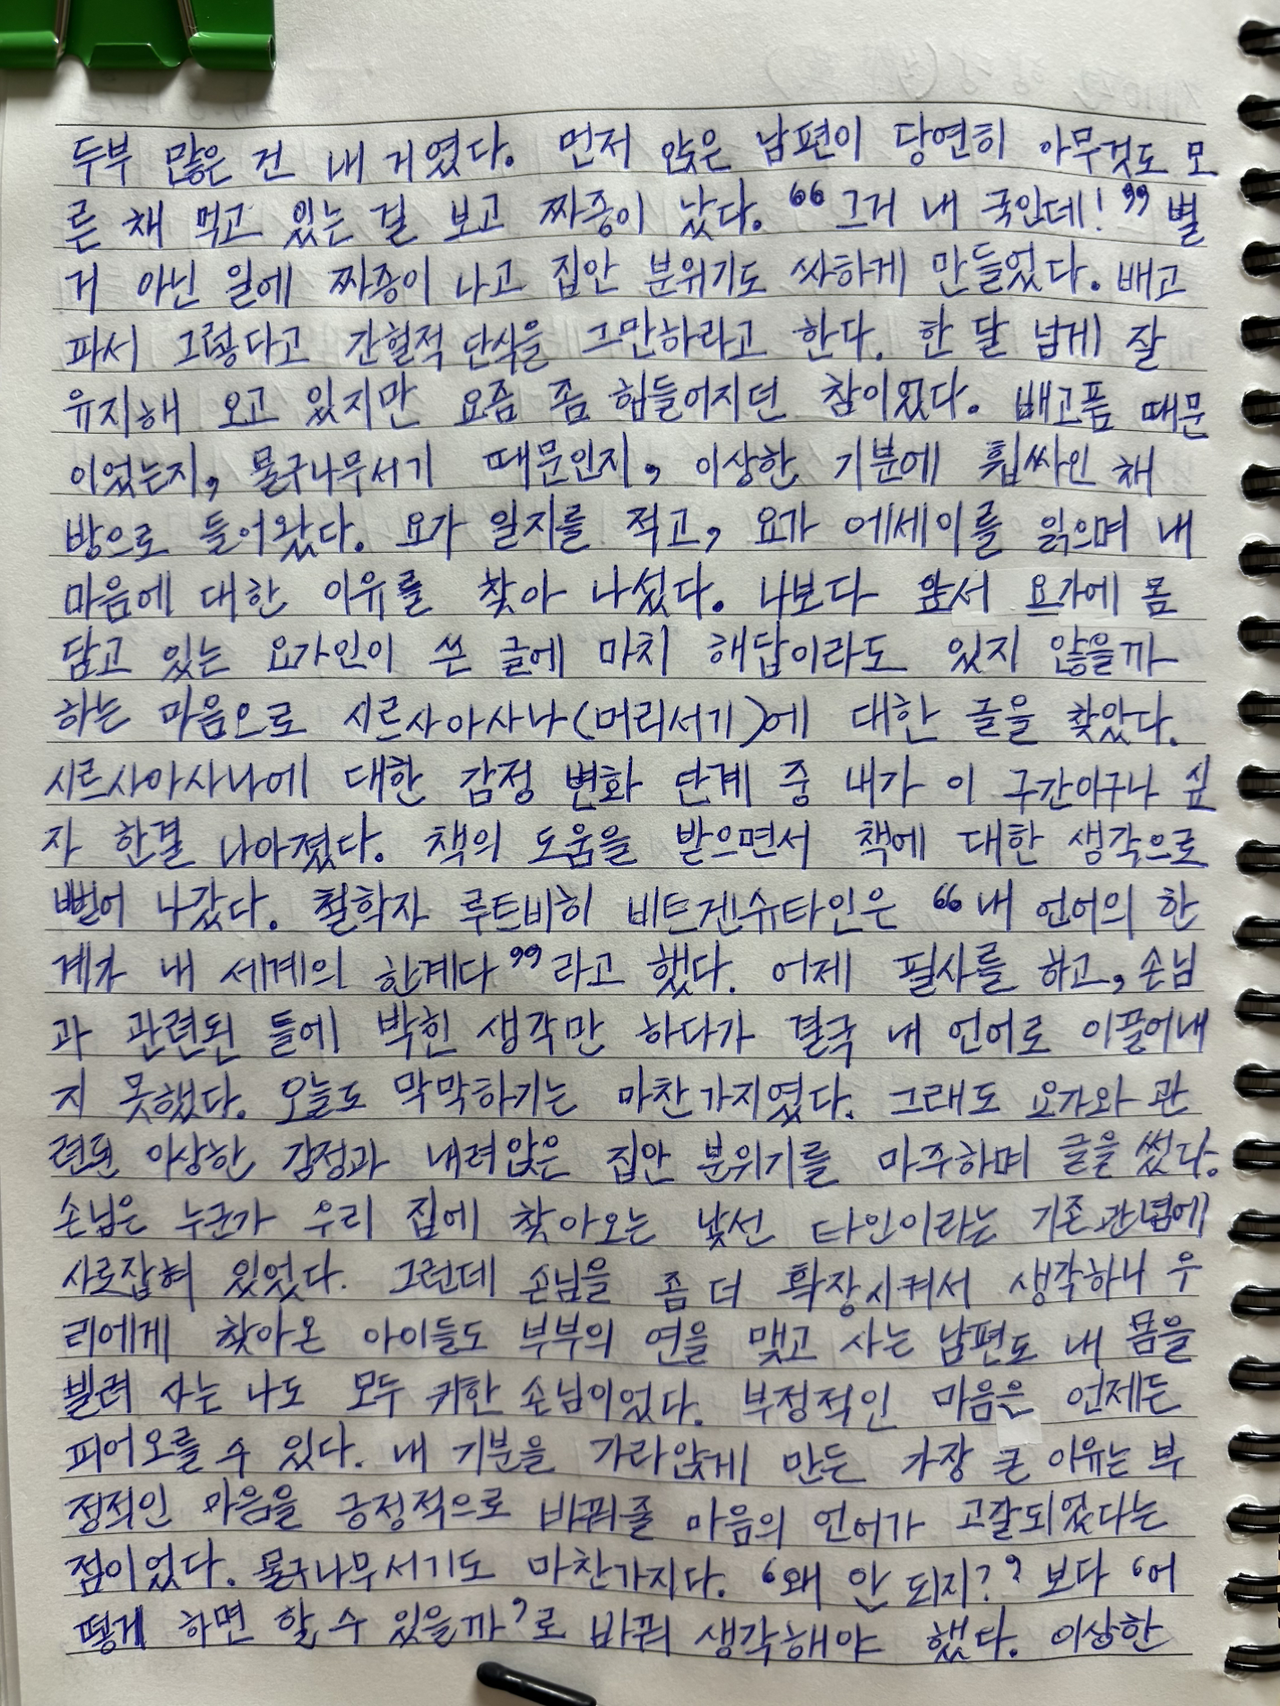 두부 많은 건 내 거였다. 먼저 앉은 남편이 당연히 아무것도 모
른 채 먹고 있는 걸 보고 짜증이 났다. “그거 내 국인데!” 별
거 아닌 일에 짜증이 나고 집안 분위기도 싸하게 만들었다. 배고
파서 그렇다고 간헐적 단식을 그만하라고 한다. 한 달 넘게 잘
유지해 오고 있지만 요즘 좀 힘들어지던 참이었다. 배고픔 때문
이었는지, 물구나무서기 때문인지, 이상한 기분에 휩싸인 채
방으로 들어왔다. 요가 일지를 적고, 요가 에세이를 읽으며 내
마음에 대한 이유를 찾아 나섰다. 나보다 앞서 요가에 몸
담고 있는 요가인이 쓴 글에 마치 해답이라도 있지 않을까
하는 마음으로 시르사아사나(머리서기)에 대한 글을 찾았다.
시르사아사나에 대한 감정 변화 단계 중 내가 이 구간이구나 싶
자 한결 나아졌다. 책의 도움을 받으면서 책에 대한 생각으로
뻗어 나갔다. 철학자 루트비히 비트겐슈타인은 “내 언어의 한
계가 내 세계의 한계다”라고 했다. 어제 필사를 하고, 손님
과 관련된 틀에 박힌 생각만 하다가 결국 내 언어로 이끌어내
지 못했다. 오늘도 막막하기는 마찬가지였다. 그래도 요가와 관
련된 이상한 감정과 내려앉은 집안 분위기를 마주하며 글을 썼다.
손님은 누군가 우리 집에 찾아오는 낯선 타인이라는 기존관념에
사로잡혀 있었다. 그런데 손님을 좀 더 확장시켜서 생각하니 우
리에게 찾아온 아이들도 부부의 연을 맺고 사는 남편도 내 몸을
빌려 사는 나도 모두 귀한 손님이었다. 부정적인 마음은 언제든
피어오를 수 있다. 내 기분을 가라앉게 만든 가장 큰 이유는 부
정적인 마음을 긍정적으로 바꿔줄 마음의 언어가 고갈되었다는
점이었다. 물구나무서기도 마찬가지다. ‘왜 안 되지?’ 보다 ‘어
떻게 하면 할 수 있을까’로 바꿔 생각해야 했다. 이상한